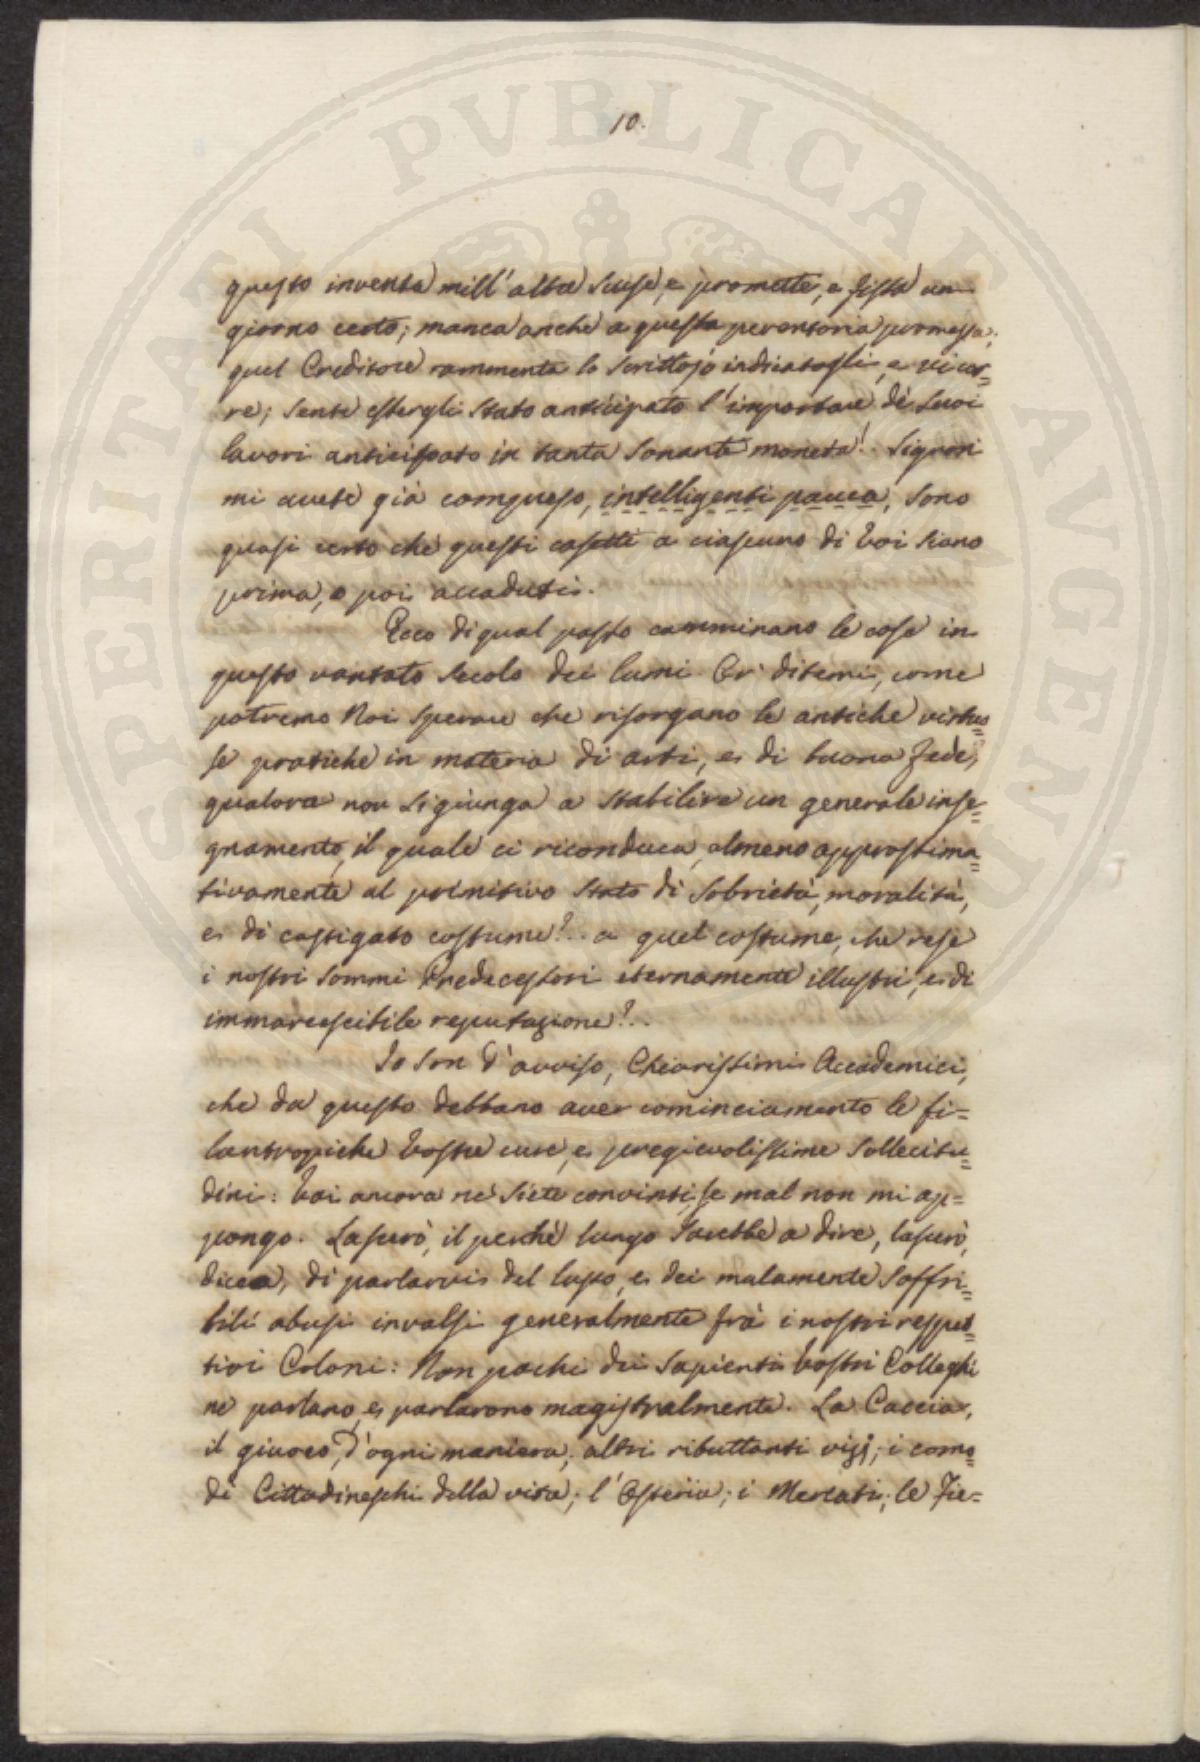 10.
questo inventa mill'altre scuse, e promette, e fissa un
giorno certo; manca anche a questa perentoria promessa;
quel Creditore rammenta lo Scrittojo indicatogli, e ricor=
re; sente essergli stato anticipato l'importare de suoi
lavori anticipato in tanta sonante moneta!. Signori
mi avete già compreso, intelligenti pauca, sono
quasi certo che questi casetti a ciascuno di Voi siano
prima, o poi accaduti.
Ecco di qual passo camminano le cose in
questo vantato secolo dei lumi. Or ditemi, come
potremo Noi sperare che risorgano le antiche virtuo=
se pratiche in materia di arti, e di buona fede,
qualora non si giunga a stabilire un generale inse=
gnamento, il quale ci riconduca, almeno approssima=
tivamente al primitivo stato di sobrietà, moralità,
e di castigato costume?.. a quel costume, che rese
i nostri sommi Predecessori eternamente illustri, e di
immarcescibile reputazione?..
Io son d'avviso, Chiarissimi Accademici,
che da questo debbano aver cominciamento le fi=
lantropiche Vostre cure, e pregievolissime sollecitu=
dini: Voi ancora ne siete convinti, se mal non mi ap=
pongo. Lascerò, il perchè lungo sarebbe a dire, lascerò,
dicea, di parlarvi del lusso, e dei malamente soffri=
bili abusi invalsi generalmente frà i nostri rispet=
tivi Coloni: Non pochi dei sapienti Vostri Colleghi
ne parlano, e parlarono magistralmente. La Caccia,
il giuoco, d'ogni maniera; altri ributtanti vizj; i como=
di Cittadineschi della vita; l'Osteria; i Mercati; le Fie=